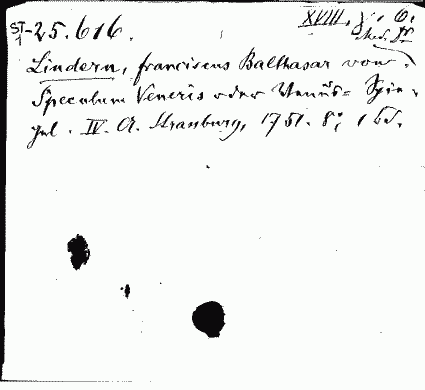 ST 1-25.616.
XVIII. 6.
Med. II
Lindern, franciscus Balthasar von.
Speculum Veneris oder Venus= Spie-
gel. IV. A. Strasburg, 1751. 8°, 1 bd.